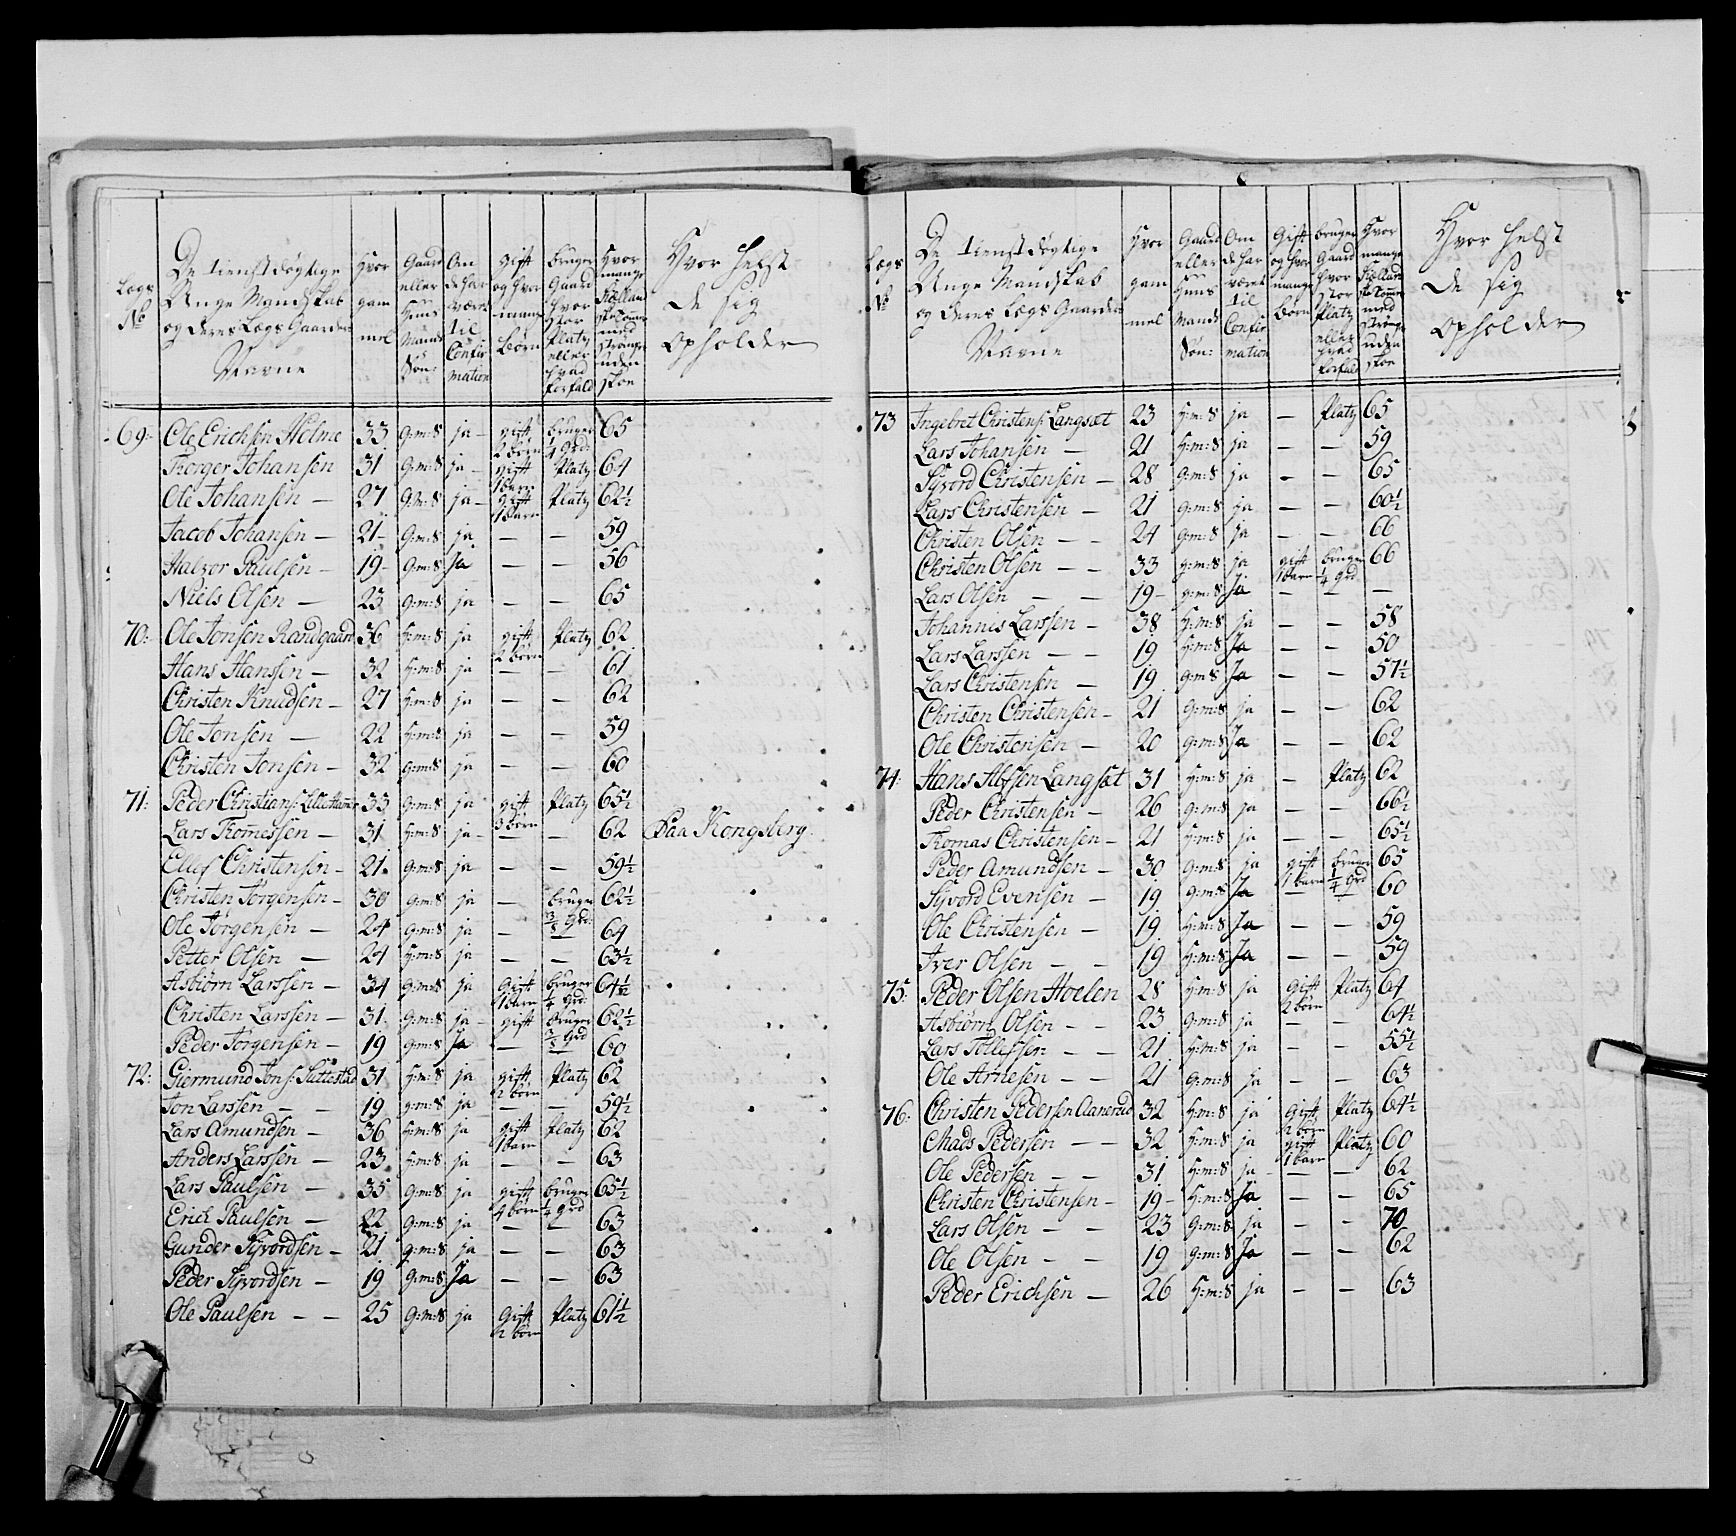 Legs No
De tienstdögtige Unge Mandskab og deres Legs Gaarders Navne
Hvor gam mel
Gaard eller Huus Mands Søn:
Om de har været til Confir mation
gift og hvor mange børn
bruger Gaard hvor stor Platz eller hvad forfald
Hvor mange Siællands Tommer med strømper uden skoe
Hvor helst de sig opholder
69: Ole Erichsen Holme 33 G:m:S ja gift 2 børn bruger 1/4 Grd: 65
Torger Johansen 31 G:m:S ja gift 1 barn Platz 64
Ole Johansen 27 G:M:S ja gift 1 barn Platz 62½
Jacob Johansen 21 G:m:S ja — — 59
Halvor Paulsen 19 G:m:S Ja — — 56
Niels Olsen 23 G:m:S ja — — 65
70: Ole Jonsen Randgaard 36 H:m:S ja gift 2 børn Platz 62
Hans Hanssen 32 H:m:S ja — — 61
Christen Knudsen 27 H:m:S ja — — 62
Ole Jonsen 22 H:m:S ja — — 59
Christen Jonsen 32 G:m:S ja — — 60
71: Peder Christians: Lille Hamer 33 G:m:S ja gift 3 børn Platz 65½
Lars Thomessen 31 H:m:S ja — — 62 Paa Kongsberg.
Ellef Christensen 21 G:m:S ja — — 59½
Christen Jørgensen 30 G:m:S ja — bruger 3/8 Grd: 62½
Ole Jørgensen 24 G:m:S ja — — 64
Petter Olsen 24 H:m:S ja — — 63½
Asbiørn Larssen 34 G:m:S ja Gift 1 barn bruger 1/4 Grd: 64½
Christen Larssen 31 G:m:S ja gift bruger 3/8 Grd 62½
Peder Jørgensen 19 G:m:S Ja — — 60
72: Giermund Jons: Suttestad 31 H:m:S ja gift 2 børn Platz 62
Jon Larssen 19 G:m:S ja — — 59½
Lars Amundsen 36 H:m:S ja gift 1 barn Platz 62
Anders Larssen 23 H:m:S ja — — 63
Lars Paulsen 35 G:m:S ja gift 4 børn bruger 1/4 Grd 65½
Erich Paulsen 22 G:m:S ja — — 63
Gunder Syvordsen 21 G:m:S ja — — 63
Peder Syvordsen 19 G:m:S Ja — — 63
Ole Paulsen 25 G:m:S ja Gift 2 børn Platz 61½
Legs No
De tienstdøgtige Unge Mandskab og deres Legs Gaarders Navne
Hvor gam mel
Gaard eller Huus Mands Søn:
Om de har været til Confir mation
Gift og hvor mange Børn
bruger Gaard hvor stor Platz eller hvad forfald
Hvor mange Siællands Tommer med strømper uden skoe
Hvor helst de sig opholder
73 Ingebret Christens: Langsæt 23 H:m:S ja — Platz 65
Lars Johansen 21 H:m:S ja — — 59
Syvord Christensen 28 G:m:S ja — — 65
Lars Christensen 21 G:m:S ja — — 60½
Christen Olsen 24 G:m:S ja — — 66
Christen Olsen 33 G:m:S ja gift 1 barn bruger 1/4 Grd 66
Lars Olsen 19 G:m:S Ja — — —
Johannes Larssen 38 H:m:S ja — — 58
Lars Larssen 19 H:m:S Ja — — 50
Lars Christensen 19 G:m:S Ja — — 57½
Christen Christensen 21 G:m:S ja — — 62
Ole Christensen 20 G:m:S Ja — — 62
74: Hans Alfsen Langsæt 31 H:m:S ja — Platz 62
Peder Christensen 26 G:m:S ja — — 66½
Thomas Christensen 21 H:m:S ja — — 65½
Peder Amundsen 30 G:m:S ja gift 1 barn bruger 1/4 Grd 65
Syvord Evensen 19 G:m:S Ja — — 60
Ole Christensen 19 H:m:S Ja — — 59
Iver Olsen 19 H:m:S Ja — — 59
75: Peder Olsen Hoelen 28 H:m:S ja gift 2 børn Platz 64
Asbiørn Olsen 23 G:m:S ja — — 64½
Lars Tollefsen 21 H:m:S ja — — 55½
Ole Arnesen 21 G:m:S ja — — 63
76: Christen Pedersen Aanerud 32 H:m:S ja Gift 2 børn Platz 64½
Mads Pedersen 32 H:m:S ja gift 1 barn Platz 60
Ole Pedersen 31 H:m:S ja — — 62
Christen Christensen 19 H:m:S Ja — — 65
Lars Olsen 23 G:m:S ja — — 70
Ole Olsen 19 G:m:S Ja — — 62
Peder Erichsen 26 H:m:S ja — — 63